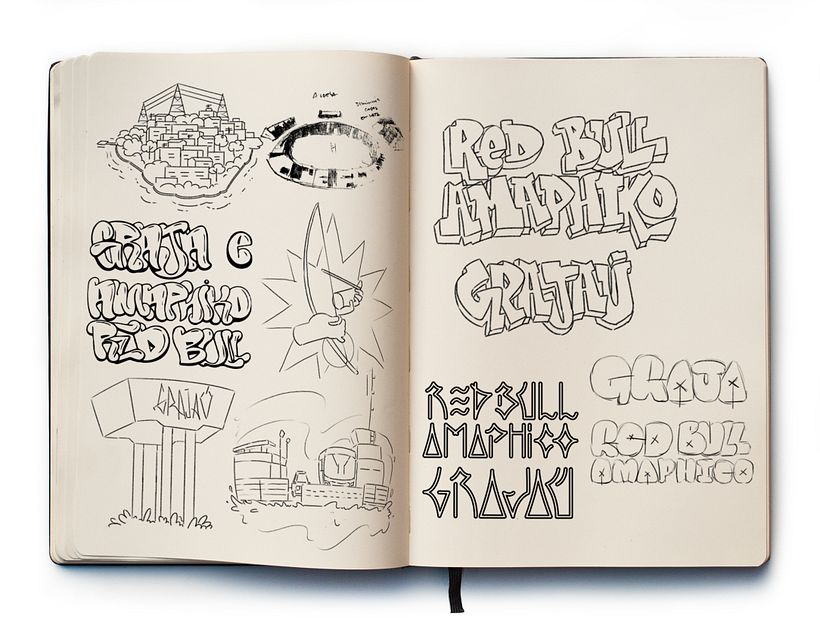 Aldeia
GRAJA E
AMAPHIKO
RED BULL
GRAJAÚ
RED BULL
AMAPHIKO
GRAJAÚ
RED BULL
AMAPHICO
GRAJAÚ
GRAJA
RED BULL
AMAPHICO